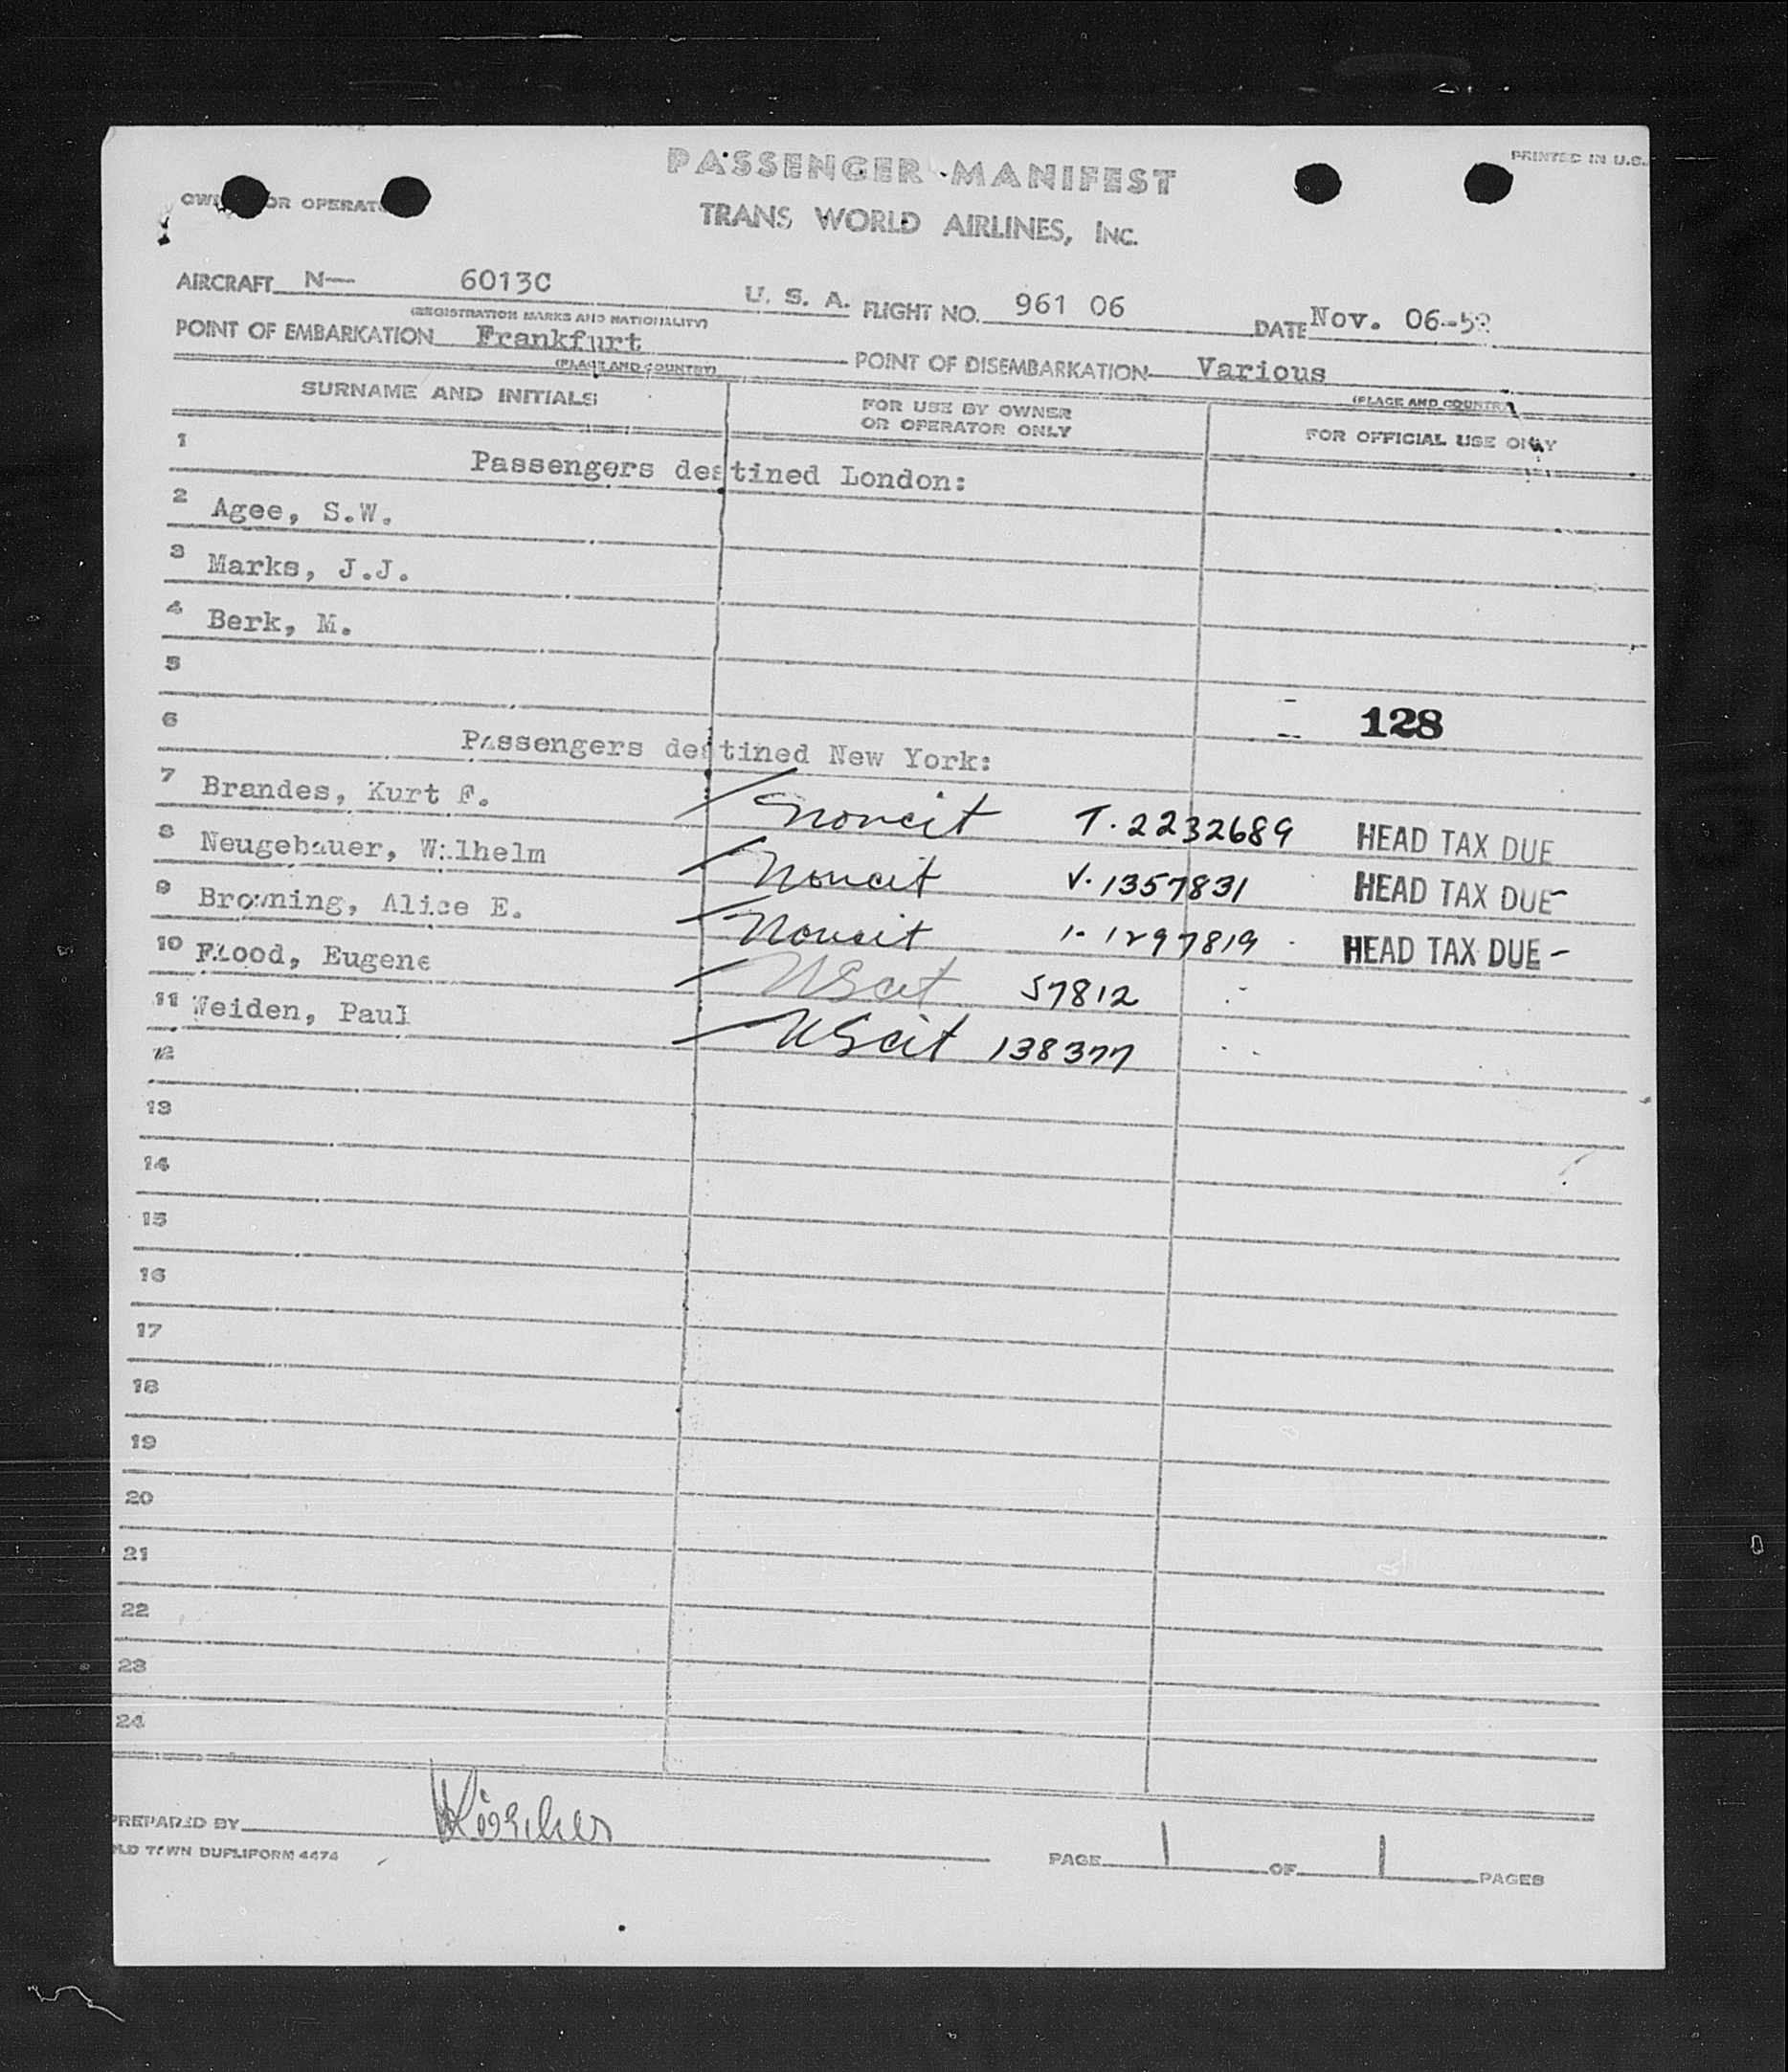 PRINTED IN U.S.
PASSENGER MANIFEST
OR OPERAT
TRANS WORLD AIRLINES, INC.
AIRCRAFT N— 6013C U. S. A. FLIGHT NO. 961 06 DATE Nov. 06-52
(REGISTRATION MARKS AND NATIONALITY)
POINT OF EMBARKATION Frankfurt POINT OF DISEMBARKATION Various
(PLACE AND COUNTRY) (PLACE AND COUNTRY)
SURNAME AND INITIALS FOR USE BY OWNER OR OPERATOR ONLY FOR OFFICIAL USE ONLY
1 Passengers destined London:
2 Agee, S.W.
3 Marks, J.J.
4 Berk, M.
5
128
6 Passengers destined New York:
7 Brandes, Kurt F. Noncit T. 2232689 HEAD TAX DUE
8 Neugebauer, Wilhelm Noncit V. 1357831 HEAD TAX DUE
9 Browning, Alice E. Noncit 1297819 HEAD TAX DUE
10 Flood, Eugene US cit 57812
11 Weiden, Paul US cit 138377
12
13
14
15
16
17
18
19
20
21
22
23
24
PREPARED BY
OLD TOWN DUPLIFORM 4474
PAGE 1 OF 1 PAGES